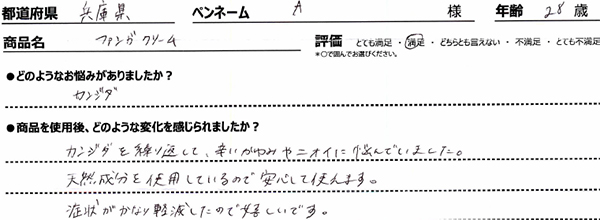 都道府県 兵庫県 ペンネーム A 様 年齢 28 歳
商品名 ファンガクリーム 評価 とても満足・満足・どちらとも言えない・不満足・とても不満足
*○で囲んでお選びください。
●どのようなお悩みがありましたか?
カンジダ
●商品を使用後、どのような変化を感じられましたか?
カンジダを繰り返して、辛いかゆみやニオイに悩んでいました。
天然成分を使用しているので安心して使えます。
症状がかなり軽減したので嬉しいです。